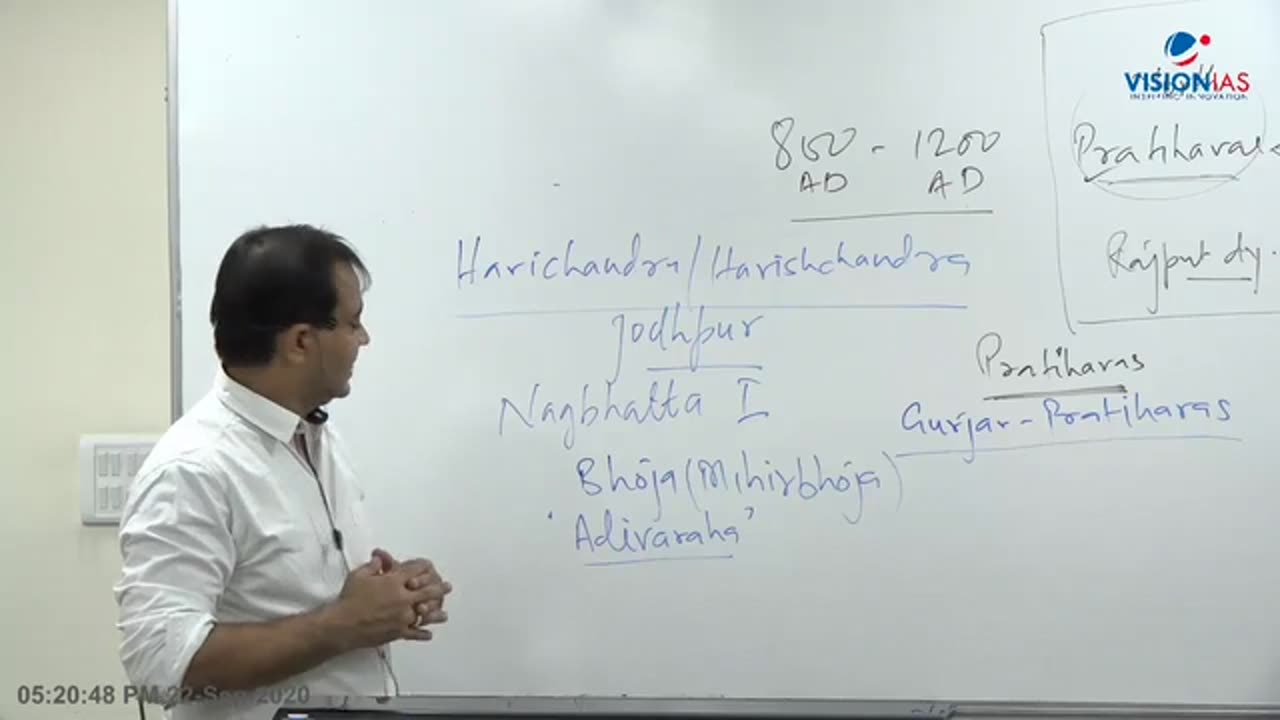 VISIONIAS
INSPIRING INNOVATION
800 - 1200
AD AD
Pratiharas
Rajput dy.
Harichandra/Harishchandra
Jodhpur
Pratiharas
Nagbhatta I
Gurjar-Pratiharas
Bhoja (Mihirbhoja)
'Adivaraha'
05:20:48 PM 22-Sep-2020